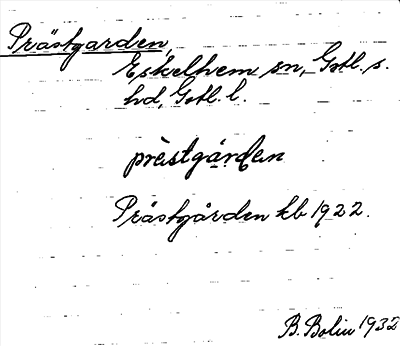 Prästgarden,
Eskelhem sn, Gotl. s.
hd, Gotl. l.
prèstgárden
Prästgården kb 1922.
B. Bolin 1932